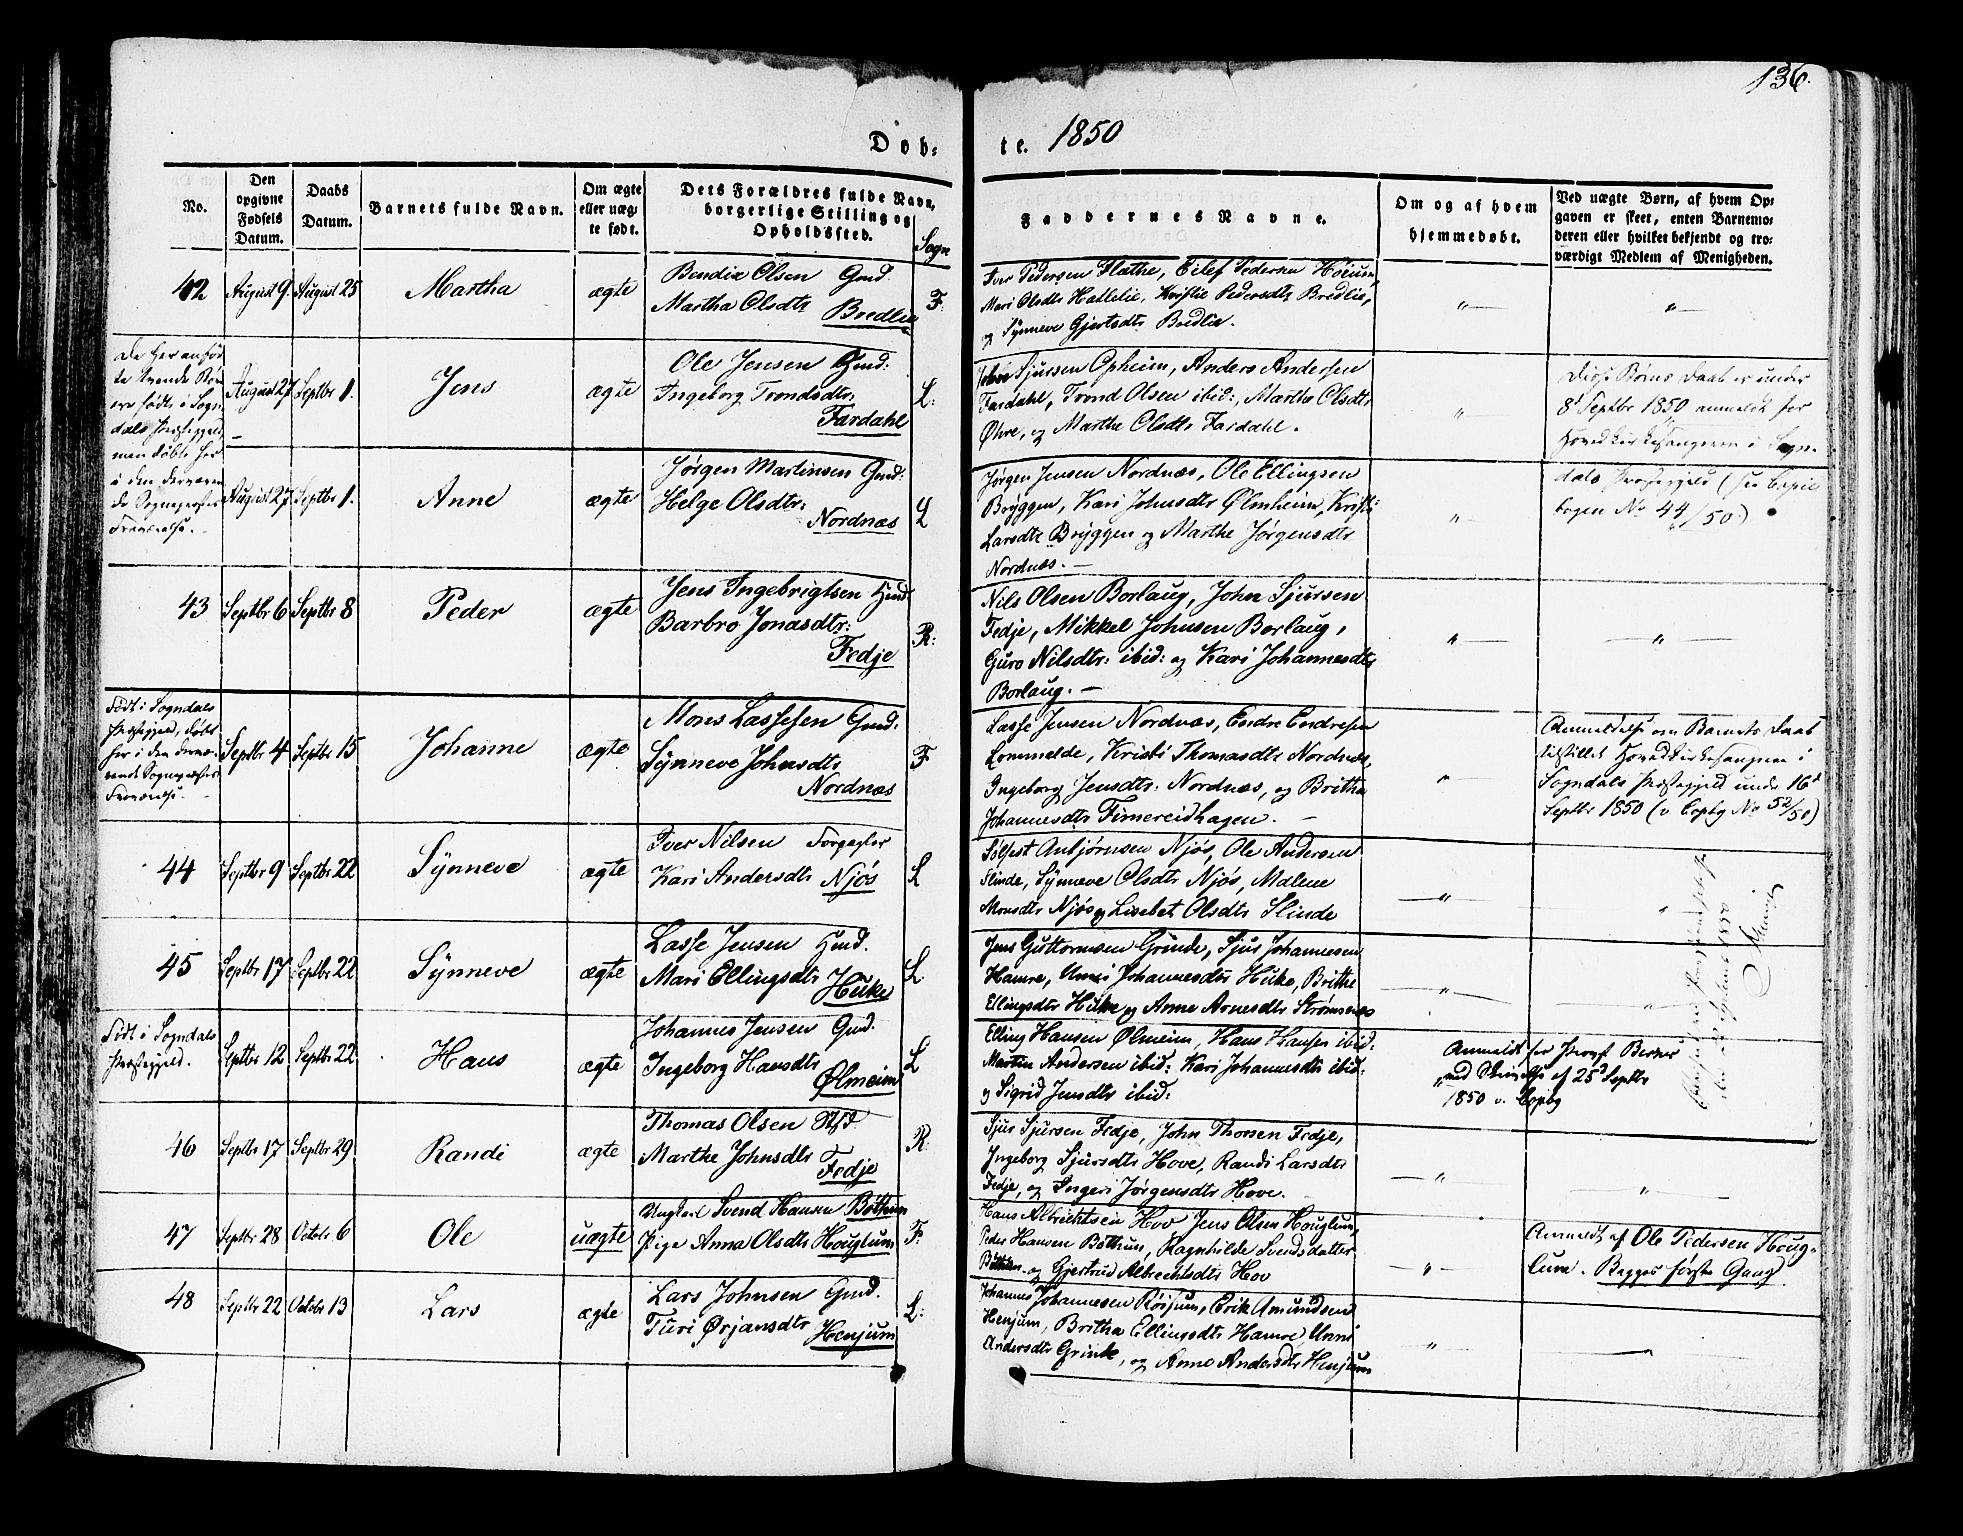 136.
Døb-
te. 1850
No.
Den opgivne Fødsels Datum.
Daabs Datum.
Barnets fulde Navn.
Om ægte eller uægte født.
Dets Forældres fulde Navn, borgerlige Stilling og Opholdssted.
Sogn
Faddernes Navne.
Om og af hvem hjemmedøbt.
Ved uægte Børn, af hvem Opgaven er skeet, enten Barnemoderen eller hvilket bekjendt og troværdigt Medlem af Menigheden.
42
August 9. August 25
Martha
ægte
Bendix Olsen Gmd:
Martha Olsdtr Bredlia
F:
Iver Pedersen Flathe, Eilef Pedersen Høium,
Mari Olsdtr Hallelie, Kristie Pedersdtr Bredlie,
og Synneve Gjertsdtr Bredlia.
De her anfør
te tvende Børn
ere fødte i Sogn
dals Præstegjeld
men døbte her
i den derværen
de Sognepræsts
Fraværelse.
August 27 Septbr 1.
Jens
ægte
Ole Jensen Gmd:
Ingeborg Trondsdtr.
Fardahl
L:
Sjursen Opheim, Anders Andersen
Fardahl, Trond Olsen ibid:, Martha Olsdtr
Øhre, og Marthe Olsdtr Fardahl.
Disse Børns Daab er under
8d Septbr 1850 anmeldt for
Hovedkirkesangeren i Sogn-
August 27 Septbr 1.
Anne
ægte
Jørgen Martinsen Gmd:
Helge Olsdtr:
Nordnæs
L
Jørgen Jensen Nordnæs, Ole Ellingsen
Bryggen, Kari Johnsdtr Ølmheim, Kristi
Larsdtr Bryggen og Marthe Jørgensdtr
Nordnæs.
dals Præstegjeld (see Copie
bogen No 44/50.)
43
Septbr 6 Septbr 8
Peder
ægte
Jens Ingebrigtsen Hmd
Barbro Jonasdtr:
Fedje
R:
Nils Olsen Borlaug, John Sjursen
Fedje, Mikkel Johnsen Borlaug,
Guro Nilsdtr: ibid: og Kari Johannesdtr
Borlaug.
Født i Sogndals
Præstegjeld, døbt
her i den derværende
Sognepræsts
Fraværelse.
Septbr 4 Septbr 15
Johanne
ægte
Mons Lassesen Gmd:
Synneve Johnsdtr
Nordnæs
F
Lasse Jensen Nordnæs, Endre Endresen
Lommelde, Kristi Thomasdtr Nordnæs,
Ingeborg Jensdtr: Nordnæs, og Britha
Johannesdtr Fimereidhagen.
Anmeldelse om Barnets Daab
tilstillet Hovedkirkesangeren i
Sogndals Præstegjeld under 16d
Septbr 1850 (v Copbg No 52/50)
44
Septbr 9 Septbr 22
Synneve
ægte
Iver Nilsen Forpagter
Kari Andersdtr Njøs
L
Sølfest Anbjørnsen Njøs, Ole Andersen
Slinde, Synneve Olsdtr Njøs, Malene
Monsdtr Njøs og Lisebet Olsdtr Slinde
45
Septbr 17 Septbr 22
Synneve
ægte
Lasse Jensen Hmd.
Mari Ellingsdtr Huke
L
Jens Guttormsen Grinde, Sjur Johannesen
Hamre, Unni Johannesdtr Huke, Brithe
Ellingsdtr Huke og Anne Arnesdtr Strømsnæs
Født i Sogndals
Præstegjeld.
Septbr 12 Septbr 22
Hans
ægte
Johannes Jensen Gmd.
Ingeborg Hansdtr
Ølmeim
L
Elling Hansen Ølmeim, Hans Hansen ibid:
Martin Andersen ibid: Kari Johannesdtr ibid:
og Sigrid Jensdtr ibid:
Anmeldt for Provst
med Skrivelse af 25d Septbr
1850 v. Copbg
46
Septbr 17 Septbr 29
Randi
ægte
Thomas Olsen
Marthe Johnsdtr
Fedje
R:
Sjur Sjursen Fedje, John Thorsen Fedje,
Ingeborg Sjursdtr Hove, Randi Larsdtr
Fedje, og Ingeri Jørgensdtr Hove.
47
Septbr 28 Octobr 6
Ole
uægte
Ungkarl Svend Hansen Bøthum
Pige Anna Olsdtr Houglum
F:
Hans Albrechtsen Hov Jens Olsen Houglum,
Peder Hansen Bøthun, Ragnhilde Svendsdatter
Bøthun og Gjertrud Albrechtsdtr Hov
Anmeldt af Ole Pedersen Houg-
lum. Begges første Gang
48
Septbr 22 Octobr 13
Lars
ægte
Lars Johnsen Gmd.
Turi Ørjansdtr Henjum
L:
Johannes Johannesen Røisum, Erik Amundsen
Henjum, Britha Ellingsdtr Hamre Unni
Andersdtr Grinde, og Anne Andersdtr Henjum